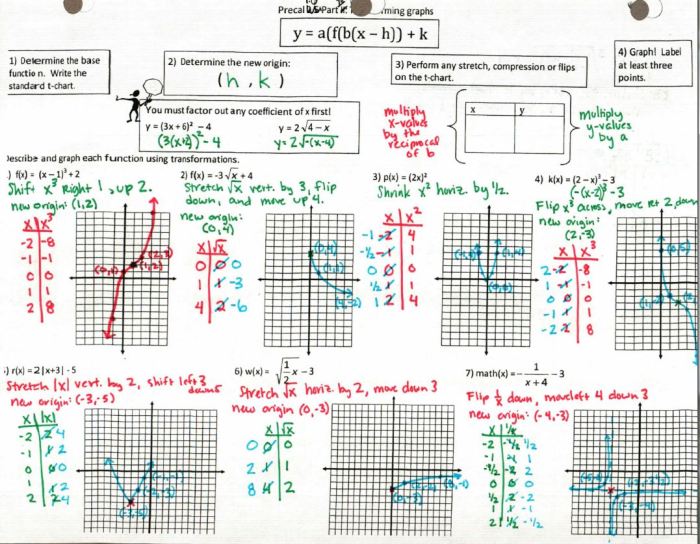 Precal
ming graphs
y = a(f(b(x − h)) + k
1) Determine the base
function. Write the
standard t-chart.
2) Determine the new origin:
(h, k)
3) Perform any stretch, compression or flips
on the t-chart.
4) Graph! Label
at least three
points.
You must factor out any coefficient of x first!
y = (3x + 6)² − 4
(3(x+2))² - 4
y = 2√4 − x
y = 2√-(x-4)
multiply
x-values
by the
reciprocal
of b
x y
multiply
y-values
by a
Describe and graph each function using transformations.
.) f(x) = (x − 1)³ + 2
Shift x³ Right 1, up 2.
new origin: (1,2)
x x³
-2 -8
-1 -1
0 0
1 1
2 8
(0,1)
(1,2)
(2,3)
2) f(x) = -3√x + 4
Stretch √x vert. by 3, flip
down, and move up 4.
new origin:
(0,4)
x √x
0 0 0
1 1 -3
4 2 -6
(0,4)
(1,1)
(4,-2)
3) p(x) = (2x)²
Shrink x² horiz. by 1/2.
x x²
-1 -2 4
-1/2 -1 1
0 0 0
1/2 1 1
1 2 4
(-1,4)
(1,4)
(0,0)
4) k(x) = (2 − x)³ − 3
(-(x-2))³ - 3
Flip x³ across, move rt 2, down
new origin:
(2,-3)
x x³
2 -2 -8
1 -1 -1
0 0 0
-1 1 1
-2 2 8
(0,5)
(1,-2)
(2,
:) r(x) = 2|x+3| - 5
Stretch |x| vert. by 2, shift left 3
down 5
new origin: (-3,-5)
x |x|
-2 2 4
-1 1 2
0 0 0
1 1 2
2 2 4
(-1,-1)
(-2,-3)
(-3,-5)
6) w(x) = √1/2 x − 3
Stretch √x horiz. by 2, move down 3
new origin (0,-3)
x √x
0 0 0
2 1 1
8 4 2
(0,-3)
(2,-2)
(8,-1)
7) math(x) = − 1/x + 4 − 3
Flip 1/x down, move left 4 down 3
new origin: (-4,-3)
x 1/x
-2 -1/2 1/2
-1 -1 1
-1/2 -2 2
0 0 0
1/2 2 -2
1 1 -1
2 1/2 -1/2